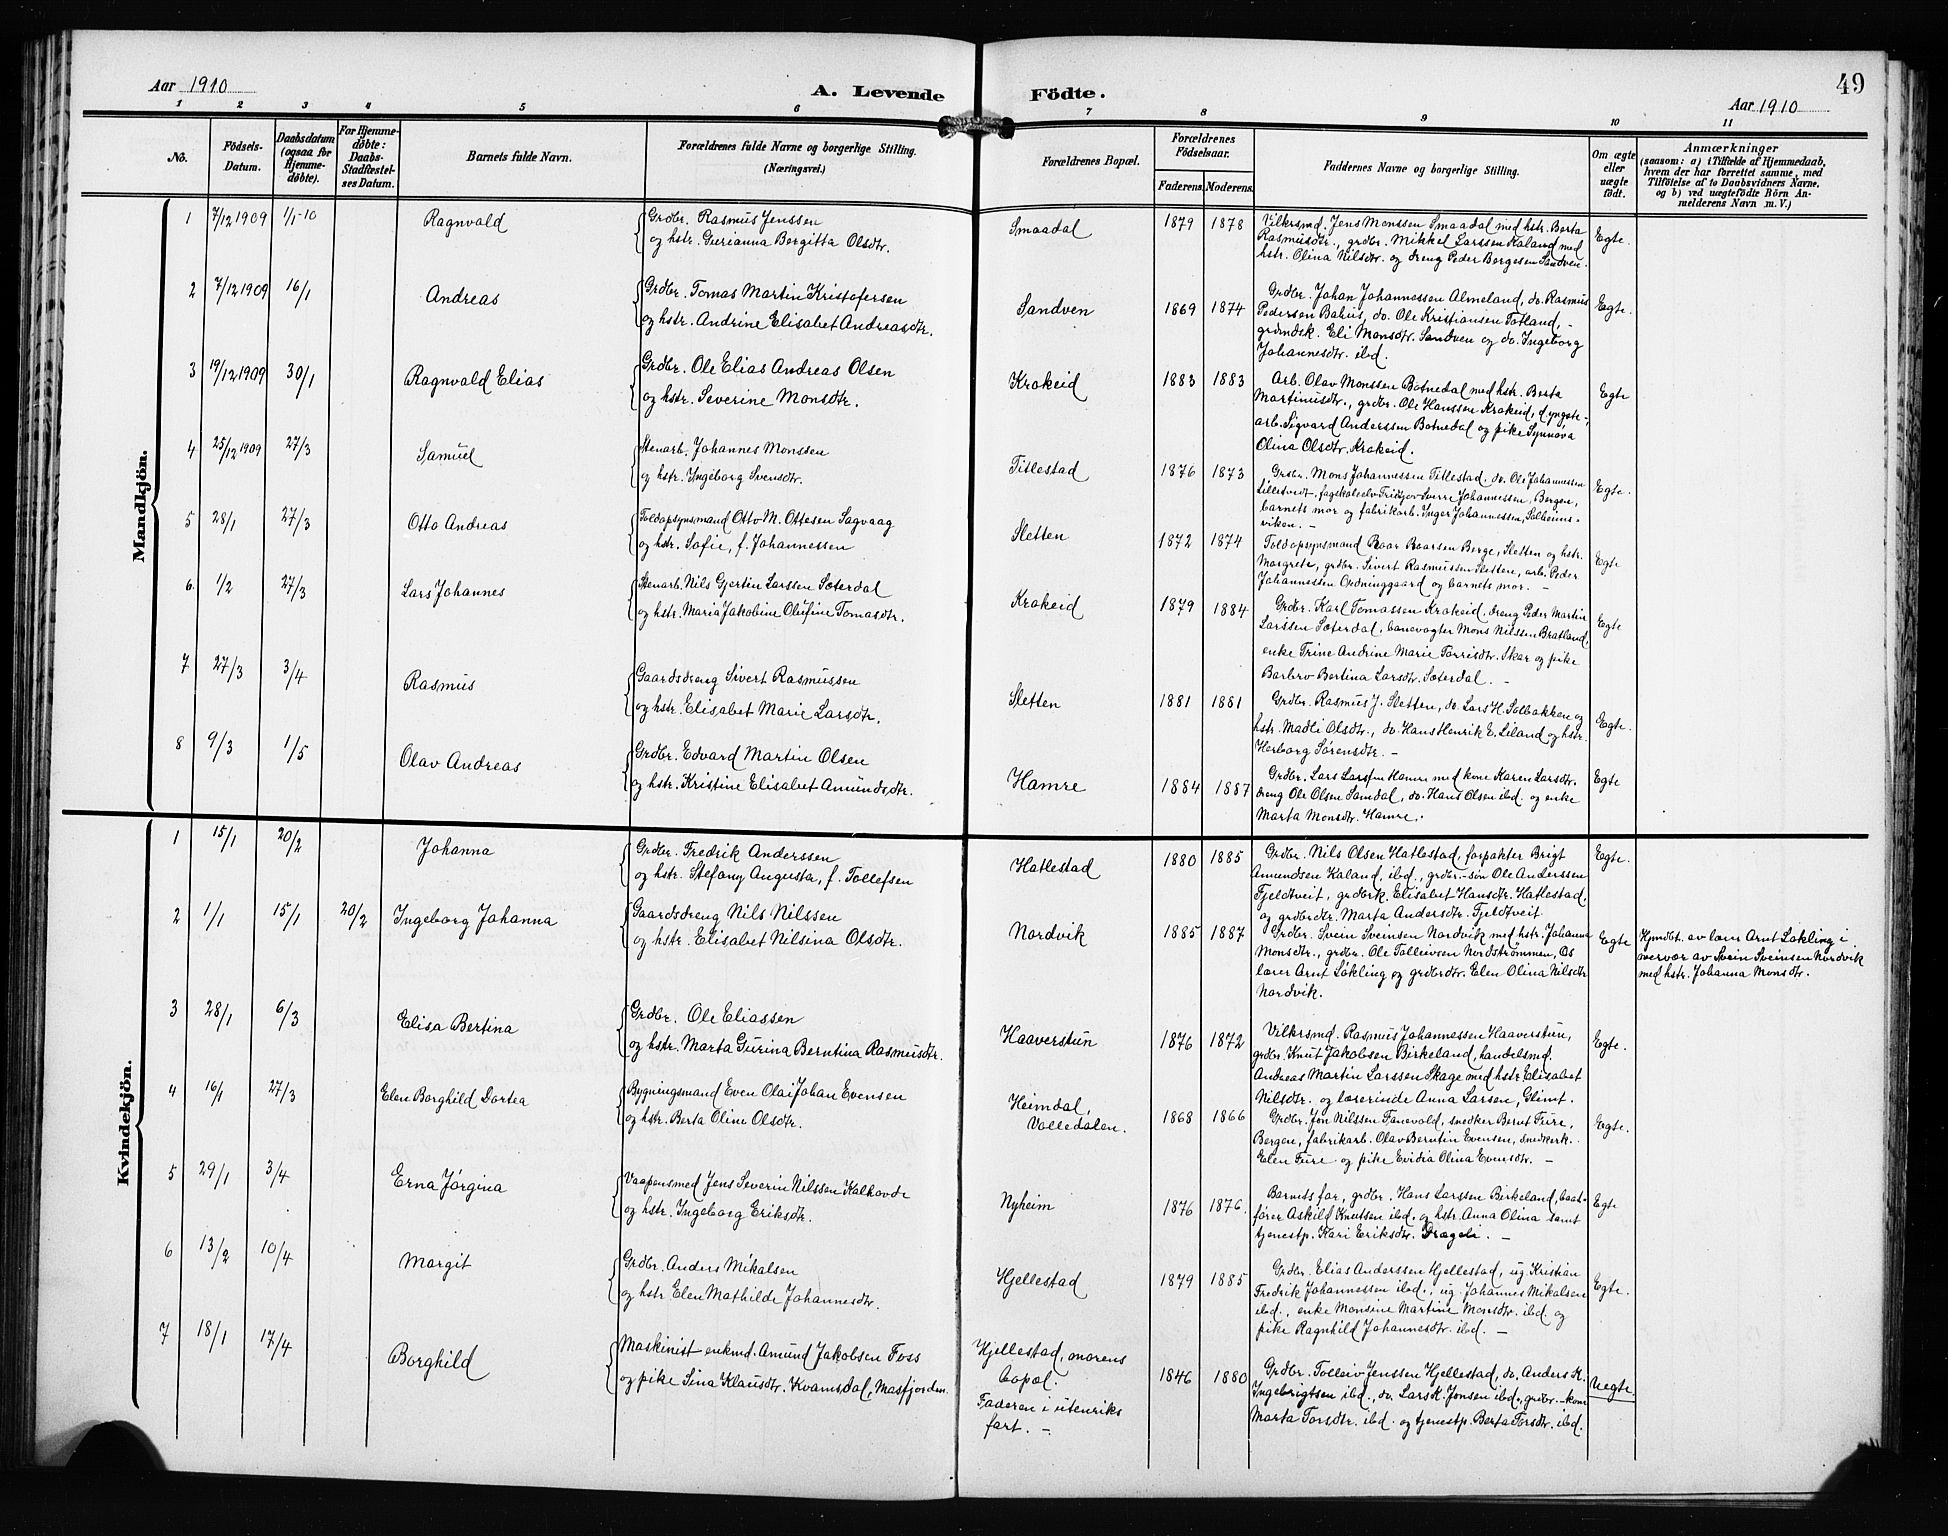 Aar 1910
A. Levende Födte.
49
Aar 1910
1 2 3 4 5 6 7 8 9 10 11
No.
Födsels-
Datum.
Daabsdatum
(ogsaa for
Hjemme-
döbte).
For Hjemme-
döbte:
Daabs-
Stadfæstel-
ses Datum.
Barnets fulde Navn.
Forældrenes fulde Navne og borgerlige Stilling.
(Næringsvei.)
Forældrenes Bopæl.
Forældrenes
Födselsaar.
Faderens. Moderens.
Faddernes Navne og borgerlige Stilling.
Om ægte
eller
uægte
födt.
Anmærkninger
(saasom: a) i Tilfælde af Hjemmedaab,
hvem der har forrettet samme, med
Tilföielse af to Daabsvidners Navne,
og b) ved uægtefödte Börn An-
melderens Navn m. V.)
Mandkjön.
1 7/12 1909 1/1-10 Ragnvald
Grdbr. Rasmus Jenssen
og hstr. Gurianna Bergitta Olsdtr.
Smaadal 1879 1878
Vilkrsmd. Jens Monssen Smaadal med hstr. Berta
Rasmusdtr., grdbr. Mikkel Larssen Kaland med
hstr. Olina Nilsdtr. og dreng Peder Børgesen Sandven.
Egte.
2 7/12 1909 16/1 Andreas
Grdbr. Tomas Martin Kristofersen
og hstr. Andrine Elisabet Andreasdtr.
Sandven 1869 1874
Grdbr. Johan Johannessen Almeland, do. Rasmus
Pedersen Bahus, do. Ole Kristiansen Totland, -
grdmdsk. Eli Monsdtr. Sandven og do. Ingeborg
Johannesdtr. ibd.
Egte.
3 19/12 1909 30/1 Ragnvald Elias
Grdbr. Ole Elias Andreas Olsen
og hstr. Severine Monsdtr.
Krokeid 1883 1883
Arb. Olav Monssen Botnedal med hstr. Berta
Martinusdtr., grdbr. Ole Hanssen Krokeid, d. yngste,
arb. Sigvard Anderssen Botnedal og pike Synnøva
Olina Olsdtr. Krokeid.
Egte
4 25/12 1909 27/3 Samuel
Stenarb. Johannes Monssen
og hstr. Ingeborg Svensdtr.
Titlestad 1876 1873
Grdbr. Mons Johannessen Titlestad, do. Ole Johannessen
Lilletvedt, fagskoleelv Fridtjov Sverre Johannessen, Bergen,
barnets mor og fabrikarb. Inger Johannessen, Solheims-
viken. -
Egte.
5 28/1 27/3 Otto Andreas
Toldopsynsmand Otto M. Ottesen Sagvaag
og hstr. Sofie, f. Johannessen
Sletten 1872 1874
Toldopsynsmand Roar Roarsen Berge, Sletten og hstr.
Margrete, grdbr. Sivert Rasmussen Sletten, arb. Peder
Johannessen Ordninggaard og barnets mor. -
Egte
6 1/2 27/3 Lars Johannes
Stenarb. Nils Gjertin Larssen Sæterdal
og hstr. Maria Jakobine Olufine Tomasdtr.
Krokeid 1879 1884
Grdbr. Karl Tomassen Krokeid, dreng Peder Martin
Larssen Sæterdal, banevogter Mons Nilssen Bratland,
enke Trine Andrine Marie Torrisdtr. Skar og pike
Barbro Bertina Larsdtr. Sæterdal. -
Egte
7 27/3 3/4 Rasmus
Gaardsdreng Sivert Rasmussen
og hstr. Elisabet Marie Larsdtr.
Sletten 1881 1881
Grdbr. Rasmus J. Sletten, do. Lars H. Solbakken og
hstr. Madli Olsdtr., do. Hans Henrik E. Liland og hstr.
Herborg Sørensdtr. -
Egte.
8 9/3 1/5 Olav Andreas
Grdbr. Edvard Martin Olsen
og hstr. Kristine Elisabet Amundsdtr.
Hamre 1884 1887
Grdbr. Lars Larssen Hamre med kone Karen Larsdtr.
dreng Ole Olsen Samdal, do. Hans Olsen ibd. og enke
Marta Monsdtr. Hamre.
Egte
Kvindekjön.
1 15/1 20/2 Johanna
Grdbr. Fredrik Anderssen
og hstr. Stefany Augusta, f. Tollefsen
Hatlestad 1880 1885
Grdbr. Nils Olsen Hatlestad, forpakter Brigt
Amundsen Kaland, ibd., grdbr.-søn Ole Anderssen
Fjeldtveit, grdbrk. Elisabet Hansdtr. Hatlestad,
og grdbrdtr. Marta Andersdtr. Fjeldtveit
Egte.
2 1/1 15/1 20/2 Ingeborg Johanna
Gaardsdreng Nils Nilssen
og hstr. Elisabet Nilsina Olsdtr.
Nordvik 1885 1887
Grdbr. Svein Sveinsen Nordvik med hstr. Johanna
Monsdtr., grdbr. Ole Tolleivsen Nordstrømmen, Os
lærer Arnt Løkling og grdbrdtr. Elen Olina Nilsdtr
Nordvik.
Egte
Hjmdbt. av lærer Arnt Løkling i
overvær av Svein Sveinsen Nordvik
med hstr. Johanna Monsdtr.
3 28/1 6/3 Elisa Bertina
Grdbr. Ole Eliassen
og hstr. Marta Gurina Berntina Rasmusdtr.
Haaverstun 1876 1872
Vilkrsmd. Rasmus Johannessen Haaverstun,
grdbr. Knut Jakobsen Birkeland, handelsmd.
Andreas Martin Larssen Skage med hstr. Elisabet
Nilsdtr. og lærerinde Anna Larsen, Glimt.
Egte.
4 16/1 27/3 Elen Borghild Dortea
Bygningsmand Even Olai Johan Evensen
og hstr. Berta Oline Olsdtr.
Heimdal,
Valledalen. 1868 1866
Grdbr. Jon Nilssen Fanevold, snedker Bernt Fure,
Bergen, fabrikarb. Olav Berntin Evensen, snedkerk.
Elen Fure og pike Evidia Olina Evensdtr. -
Egte.
5 29/1 3/4 Erna Jørgina
Vaapensmed Jens Severin Nilssen Kalhovde
og hstr. Ingeborg Eriksdtr.
Nyheim 1876 1876.
Barnets far, grdbr. Hans Larssen Birkeland, baat-
fører Askild Knutsen ibd. og hstr. Anna Olina samt
tjenestp. Kari Eriksdtr. Drægeli. -
Egte
6 13/2 10/4 Margit
Grdbr. Anders Mikalsen
og hstr. Elen Mathilde Johannesdtr.
Hjellestad 1879 1885
Grdbr. Elias Anderssen Hjellestad, ug. Kristian
Fredrik Johannessen ibd., ug. Johannes Mikalsen
ibd., enke Monsine Martine Monsdtr. ibd og
pike Ragnhild Johannesdtr. ibd. -
Egte.
7 18/1 17/4 Borghild
Maskinist enkmd. Amund Jakobsen Foss
og pike Sina Klausdtr. Kvamsdal, Masfjorden.
Hjellestad, morens
bopæl.
Faderen i utenriks
fart. -
1846 1880
Grdbr. Tolleiv Jenssen Hjellestad, do. Anders K.
Ingebrigtsen ibd., do. Lars K. Jonsen ibd., grdbr.-kone
Marta Torsdtr. ibd. og tjenestp. Berta Torsdtr. ibd.
Uegte